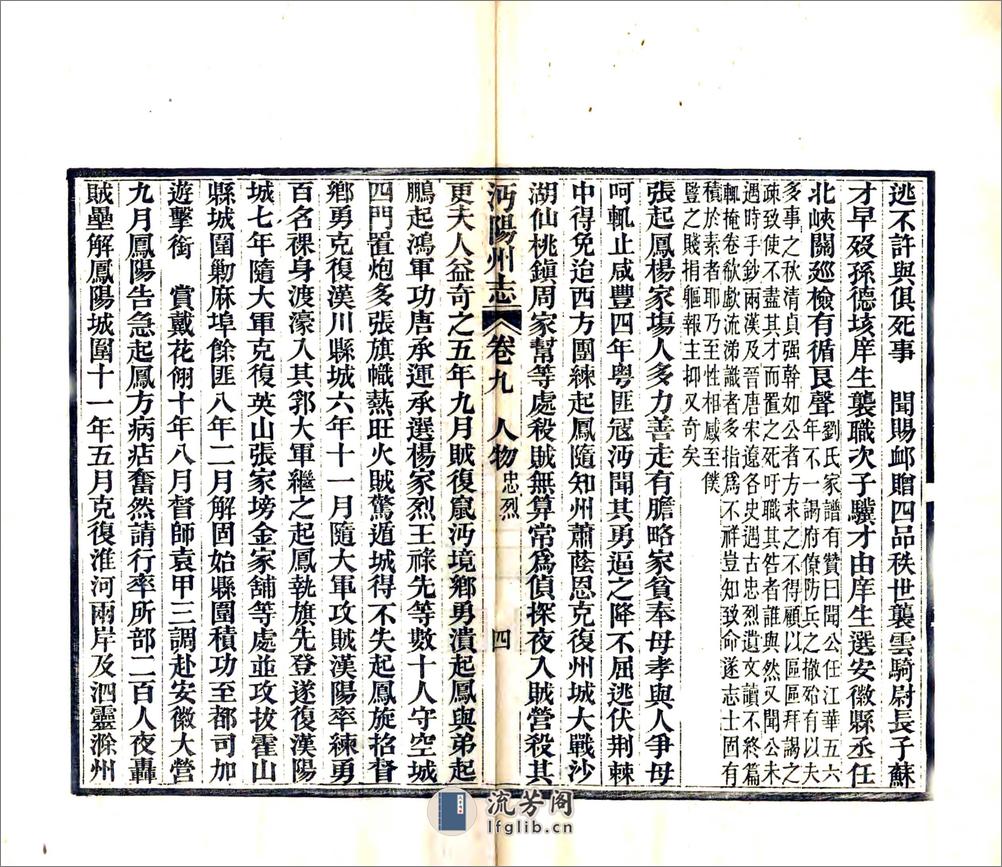 逃不許與俱死事　聞賜䘏贈四品秩世襲雲騎尉長子蘇
才早歿孫德垓庠生襲職次子驥才由庠生選安徽縣丞任
北峽關廵檢有循良聲
劉氏家譜有贊曰聞公任江華五六
年不一謁府僚防兵之撤殆有以夫
多事之秋清貞強幹如公者方來之不得顧以區區拜謁之
疎致使不盡其才而置之死吁職其咎者誰與然又聞公未
遇時手鈔兩漢及晉唐宋遼各史遇古忠烈遺文讀不終篇
輒掩卷欷歔流涕識者多指爲不祥豈知致命遂志士固有
積於素者耶乃至性相感至僕
豎之賤捐軀報主抑又奇矣
張起鳳楊家場人多力善走有膽略家貧奉母孝與人爭母
呵輒止咸豐四年粵匪寇沔聞其勇逼之降不屈逃伏荆棘
中得免迨西方團練起鳳隨知州蕭蔭恩克復州城大戰沙
湖仙桃鎮周家幫等處殺賊無算常爲偵探夜入賊營殺其
沔陽州志　卷九　人物　忠烈　四
更夫人益奇之五年九月賊復竄沔境鄉勇潰起鳳與弟起
鵬起鴻軍功唐承運承選楊家烈王祿先等數十人守空城
四門置炮多張旗幟爇旺火賊驚遁城得不失起鳳旋招督
鄉勇克復漢川縣城六年十一月隨大軍攻賊漢陽率練勇
百名裸身渡濠入其郛大軍繼之起鳳執旗先登遂復漢陽
城七年隨大軍克復英山張家塝金家舖等處並攻拔霍山
縣城圍勦麻埠餘匪八年二月解固始縣圍積功至都司加
遊擊銜　賞戴花翎十年八月督師袁甲三調赴安徽大營
九月鳳陽告急起鳳方病痁奮然請行率所部二百人夜轟
賊壘解鳳陽城圍十一年五月克復淮河兩岸及泗靈滁州
流芳阁
lfglib.cn